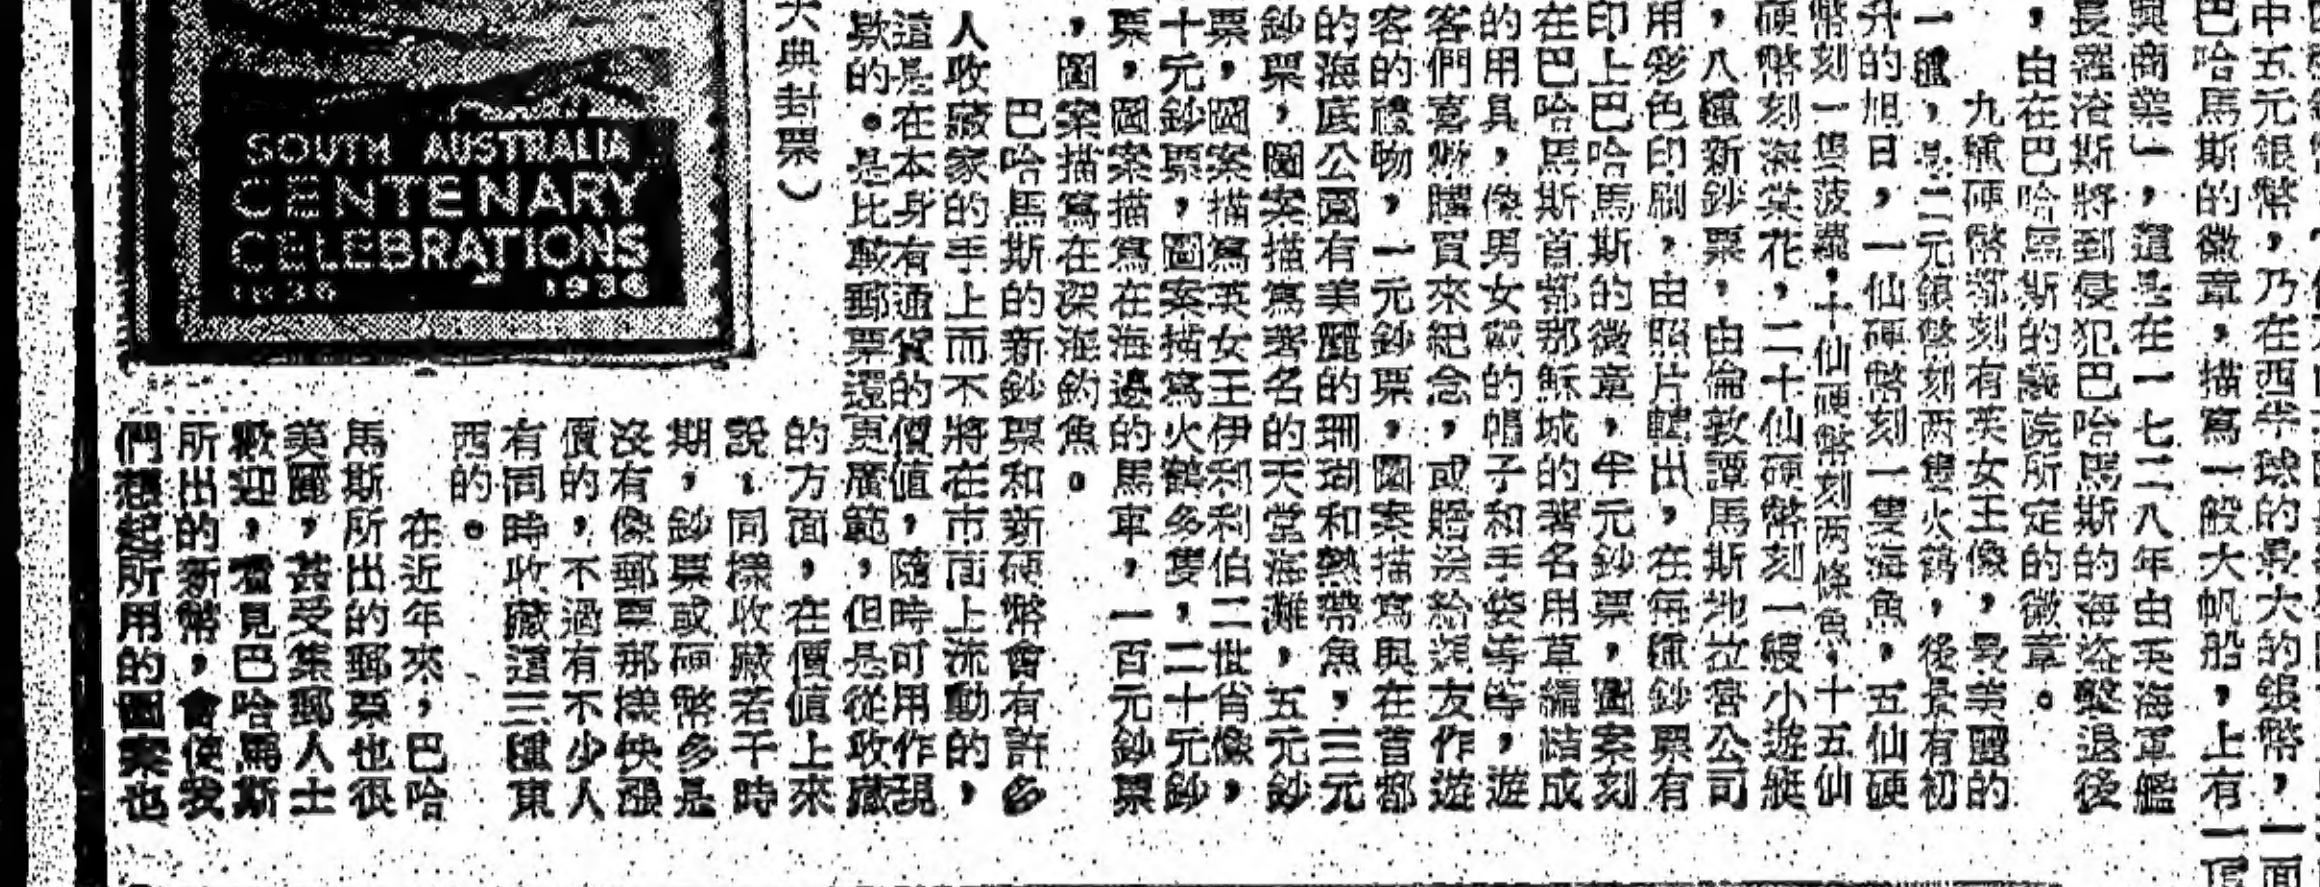 中五元銀幣，乃在西半球的最大的銀幣，一面
巴哈馬斯的徽章，描寫一般大帆船，上有一
與商業」，這是在一七二八年由英海軍艦
長羅浴斯將到侵犯巴哈馬斯的海盜擊退後
，由在巴哈馬斯的議院所定的徽章。
九種硬幣都刻有英女王像，最美麗的
一種，是二元銀幣刻两隻火鶴，後是有初
升的旭日，一仙硬幣刻一隻海魚，五仙硬
幣刻一隻菠蘿，十仙硬幣刻两條魚，十五仙
硬幣刻海棠花，二十仙硬幣刻一艘小遊艇
，八種新鈔票，由倫敦譚馬斯地拉宮公司
用彩色印刷，由照片轉出，在每種鈔票有
印上巴哈馬斯的徽章，半元鈔票，圖案刻
在巴哈馬斯首都那穌城的著名用草編結成
的用具，像男女戴的帽子和手袋等等，遊
客們喜歡購買來紀念，或贈送給親友作遊
客的禮物，一元鈔票，圖案描寫與在首都
的海底公園有美麗的珊瑚和熱帶魚，三元
鈔票，圖案描寫著名的天堂海灘，五元鈔
票，圖案描寫英女王伊利利伯二世肖像，
十元鈔票，圖案描寫火鶴多隻，二十元鈔
票，圖案描寫在海邊的馬車，一百元鈔票
，圖案描寫在深海釣魚。
巴哈馬斯的新鈔票和新硬幣會有許多
人收藏家的手上而不將在市面上流動的，
這是在本身有通貨的價值，隨時可用作現
欵的。是比較郵票還更廣範，但是從收藏
的方面，在價值上來
說，同樣收藏若干時
期，鈔票或硬幣多是
沒有像郵票那樣快漲
價的，不過有不少人
有同時收藏這三種東
西的。
在近年來，巴哈
馬斯所出的郵票也很
美麗，甚受集郵人士
歡迎，看見巴哈馬斯
所出的新幣，會使我
們想起所用的圖案也
大典封票）
SOUTH AUSTRALIA
CENTENARY
CELEBRATIONS
1836 1936